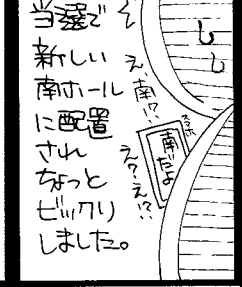 当選で
新しい
南ホール
に配置
され
ちょっと
ビックリ
しました。
え、南!?
スマホ
南だよ
え?え!?